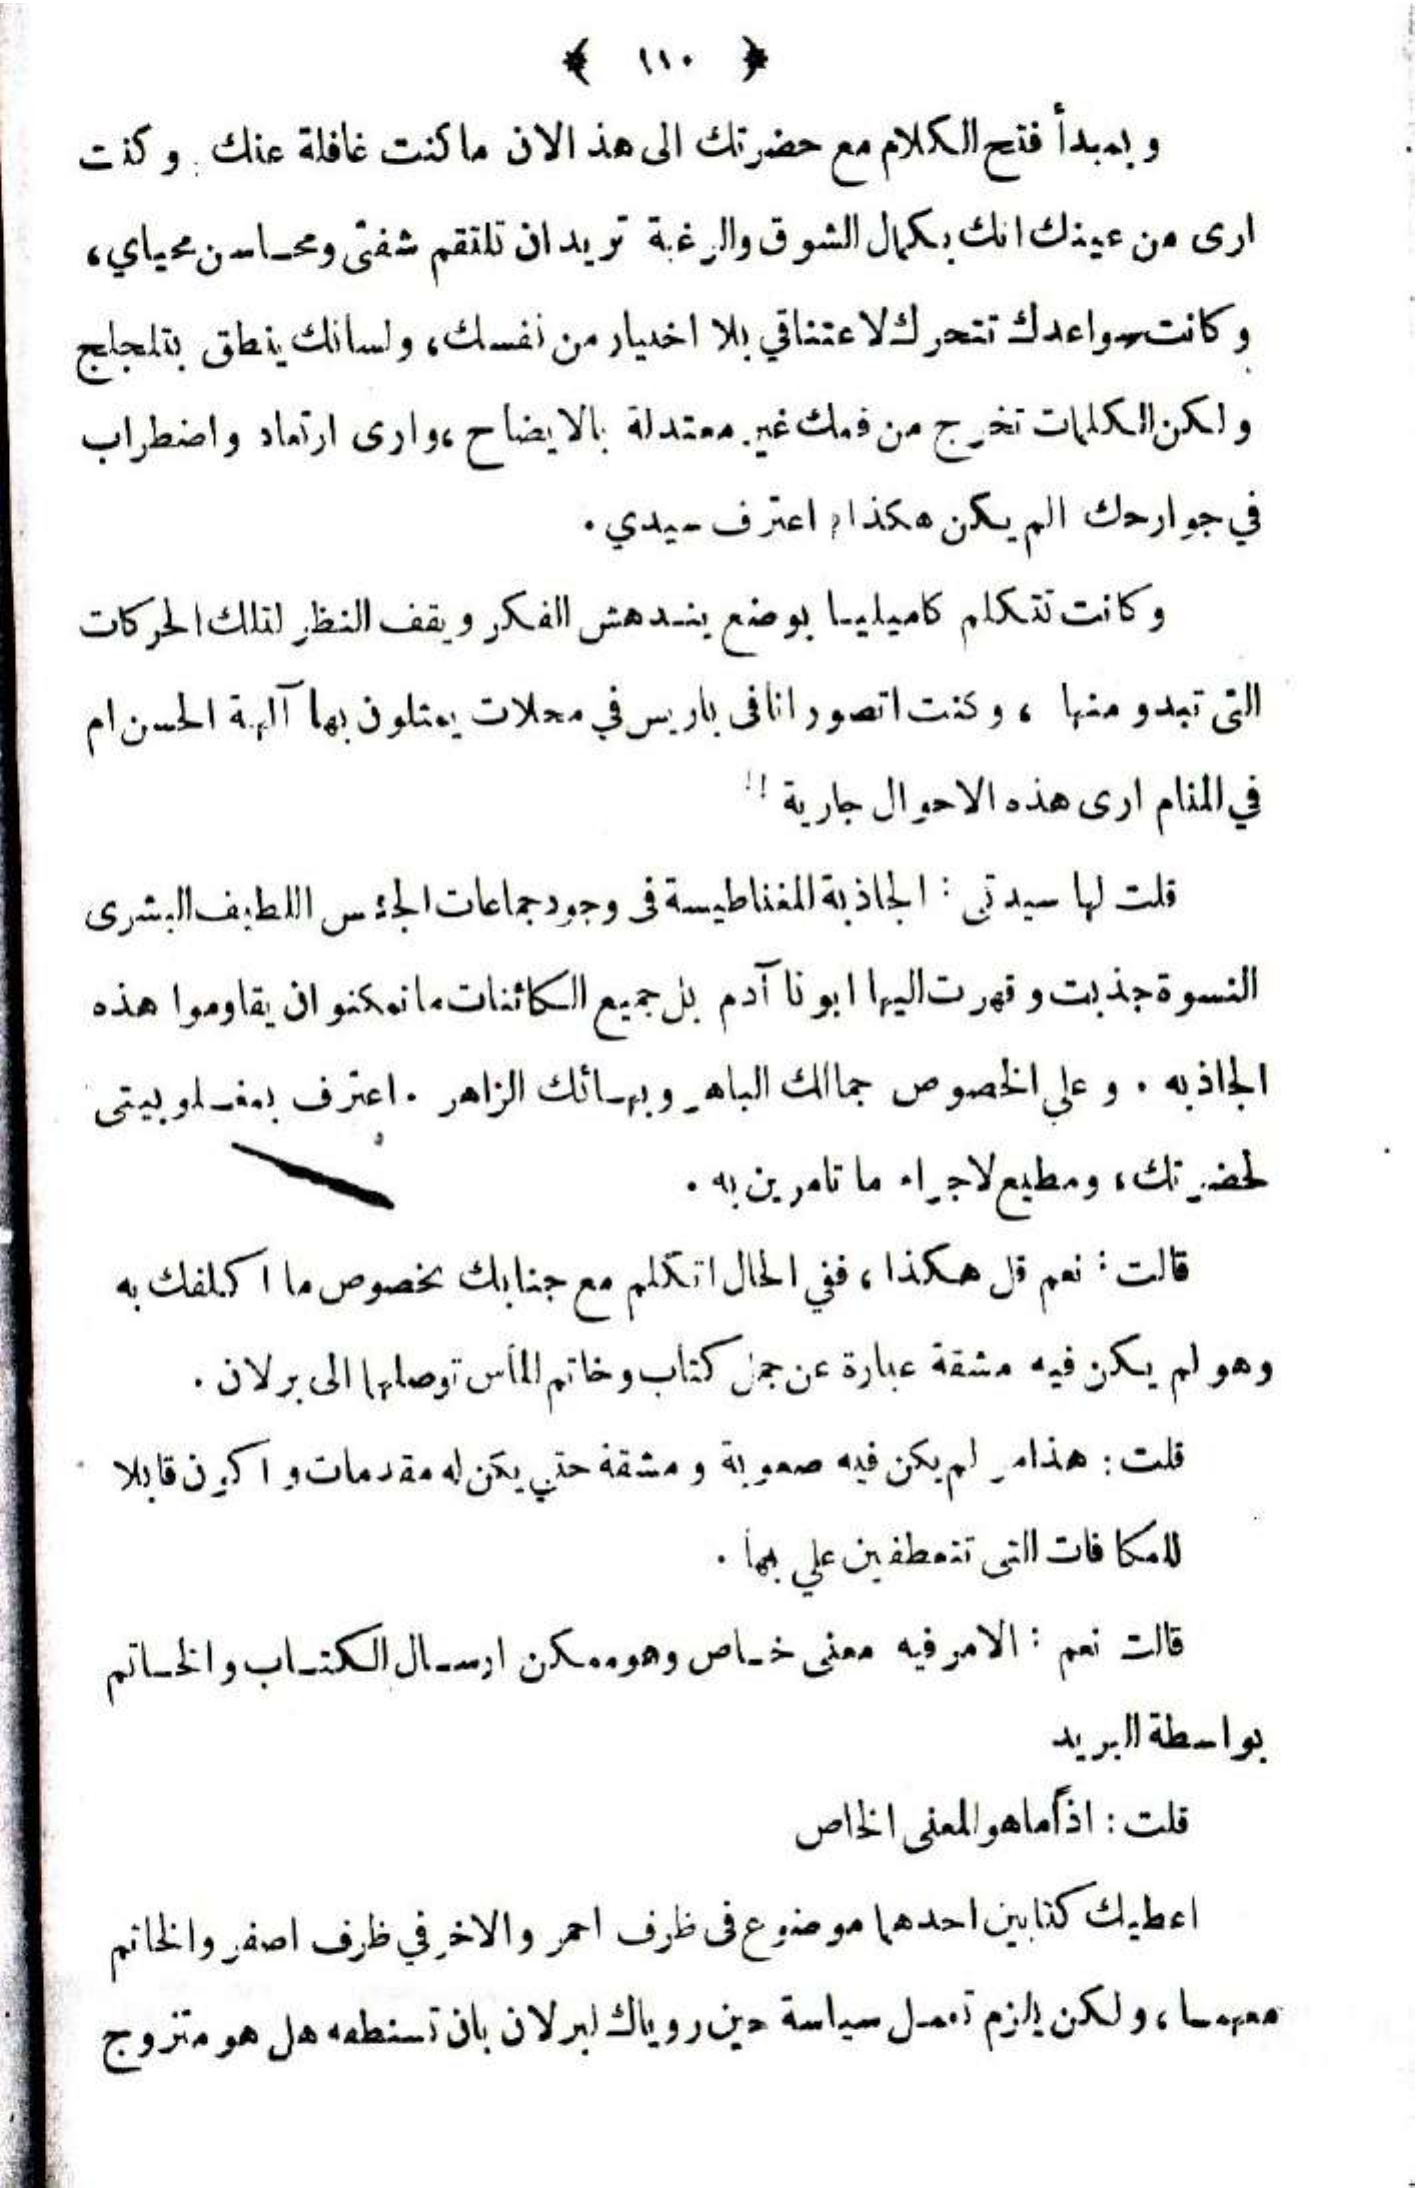 ﴿ ١١٠ ﴾
وبمبدأ فتح الكلام مع حضرتك الى هذ الان ما كنت غافلة عنك . وكنت
ارى من عينك انك بكمال الشوق والرغبة تريد ان تلتقم شفتى ومحاسن محياي،
وكانت سواعدك تتحرك لاعتناقي بلا اختيار من نفسك، ولسانك ينطق بتلجلج
ولكن الكلمات تخرج من فمك غير معتدلة بالايضاح ،وارى ارتعاد واضطراب
في جوارحك الم يكن هكذا، اعترف سيدي .
وكانت تتكلم كاميليا بوضع يندهش الفكر ويقف النظر لتلك الحركات
التى تبدو منها ، وكنت اتصور انا فى باريس في محلات يمثلون بها آلهة الحسن ام
في المنام ارى هذه الاحوال جارية !!
قلت لها سيدتى : الجاذبة المغناطيسة فى وجود جماعات الجنس اللطيف البشرى
النسوة جذبت وقهرت اليها ابونا آدم بل جميع الكائنات ما تمكنو ان يقاوموا هذه
الجاذبه . وعلي الخصوص جمالك الباهر وبهائك الزاهر . اعترف بمغلوبيتى
لحضرتك، ومطيع لاجراء ما تامرين به .
قالت : نعم قل هكذا ، ففي الحال اتكلم مع جنابك بخصوص ما اكلفك به
وهو لم يكن فيه مشقة عبارة عن حمل كتاب وخاتم الماس توصلها الى برلان .
قلت : هذامر لم يكن فيه صعوبة ومشقة حتي يكن له مقدمات واكون قابلا
للمكافات التى تتعطفين علي بها .
قالت نعم : الامر فيه معنى خاص وهو ممكن ارسال الكتاب والخاتم
بواسطة البريد
قلت : اذاً ما هو المعنى الخاص
اعطيك كتابين احدهما موضوع فى ظرف احمر والاخر في ظرف اصفر والخاتم
معهما ، ولكن يلزم تعمل سياسة حين روياك لبرلان بان تستطعه هل هو متزوج